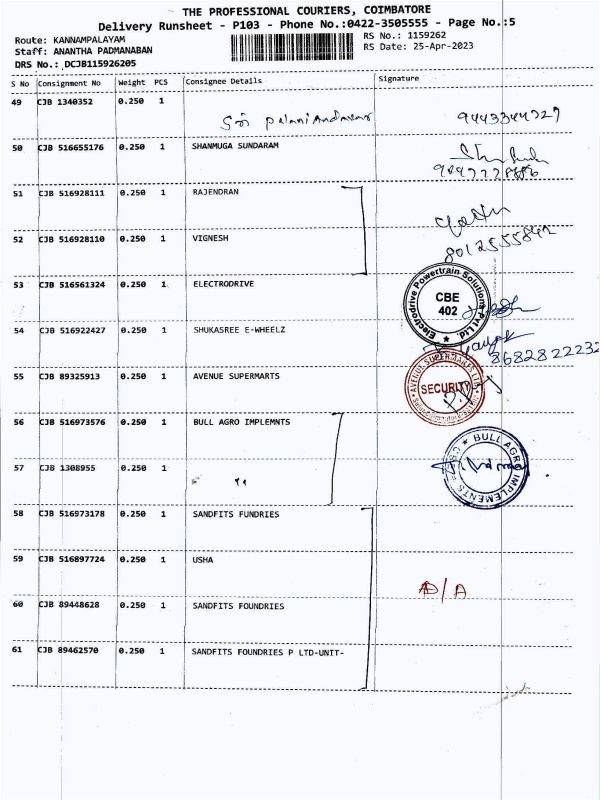 THE PROFESSIONAL COURIERS, COIMBATORE
Delivery Runsheet - P103 - Phone No.:0422-3505555 - Page No.:5
Route: KANNAMPALAYAM
RS No.: 1159262
Staff: ANANTHA PADMANABAN
RS Date: 25-Apr-2023
DRS No.: DCJB115926205
S No Consignment No Weight PCS Consignee Details Signature
49 CJB 1340352 0.250 1
Sri Palani Andavar 9443344729
50 CJB 516655176 0.250 1 SHANMUGA SUNDARAM
51 CJB 516928111 0.250 1 RAJENDRAN
52 CJB 516928110 0.250 1 VIGNESH
8012555842
53 CJB 516561324 0.250 1 ELECTRODRIVE
Electrodrive Powertrain Solutions Pvt Ltd.
CBE
402
54 CJB 516922427 0.250 1 SHUKASREE E-WHEELZ
8682822232
55 CJB 89325913 0.250 1 AVENUE SUPERMARTS
AVENUE SUPERMARTS LTD.
SECURITY
56 CJB 516973576 0.250 1 BULL AGRO IMPLEMNTS
BULL AGRO IMPLEMENTS
57 CJB 1308955 0.250 1
"
58 CJB 516973178 0.250 1 SANDFITS FUNDRIES
59 CJB 516897724 0.250 1 USHA
D/A
60 CJB 89448628 0.250 1 SANDFITS FOUNDRIES
61 CJB 89462570 0.250 1 SANDFITS FOUNDRIES P LTD-UNIT-